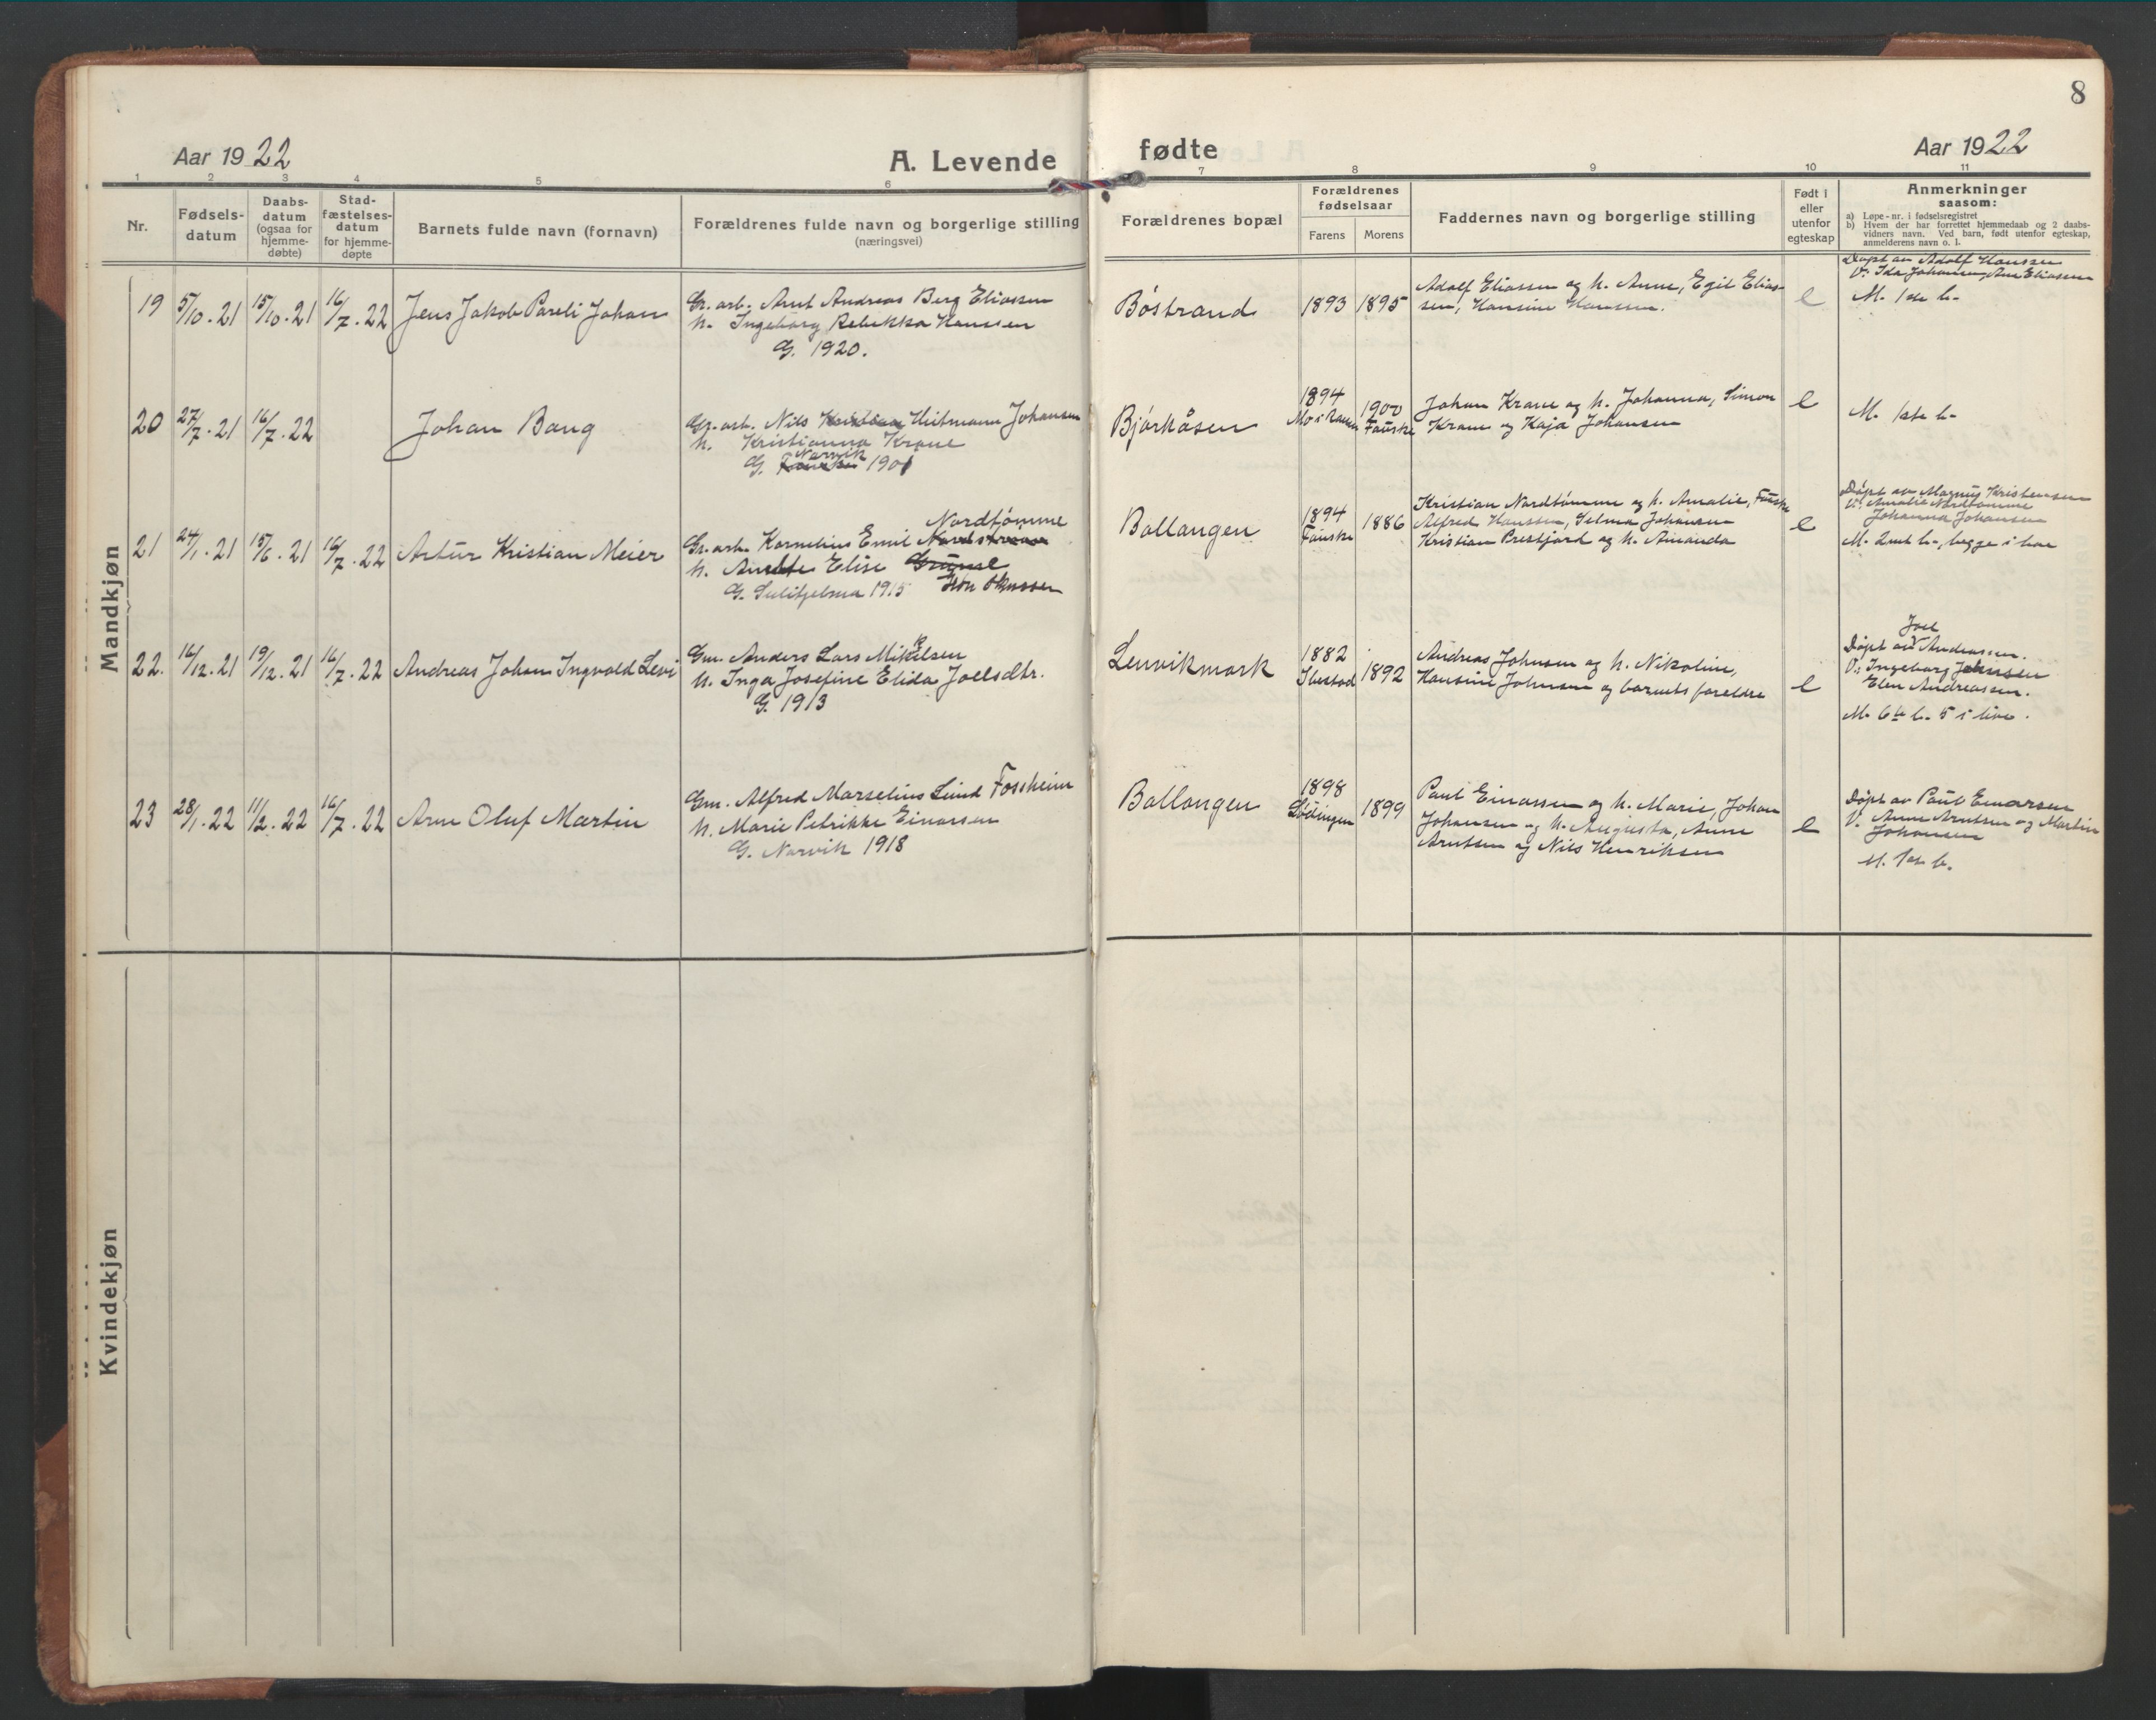 8
Aar 1922
A. Levende
fødte
Aar 1922
1 2 3 4 5 6 7 8 9 10 11
Nr.
Fødsels-
datum
Daabs-
datum
(ogsaa for
hjemme-
døbte)
Stad-
fæstelses-
datum
for hjemme-
døpte
Barnets fulde navn (fornavn)
Forældrenes fulde navn og borgerlige stilling
(næringsvei)
Forældrenes bopæl
Forældrenes
fødselsaar
Farens
Morens
Faddernes navn og borgerlige stilling
Født i
eller
utenfor
egteskap
Anmerkninger
saasom:
a) Løpe-nr. i fødselsregistret
b) Hvem der har forrettet hjemmedaab og 2 daabs-
vidners navn. Ved barn, født utenfor egteskap,
anmelderens navn o. l.
Mandkjøn
19
5/10.21
15/10.21
16/7.22
Jens Jakob Pareli Johan
Gr.arb. Arnt Andreas Berg Eliassen
h. Ingeborg Rebekka Hanssen
G. 1920.
Bøstrand
1893
1895
Adolf Eliassen og h. Anne, Egil Elias-
sen, Hansine Hanssen.
e
Døpt av Adolf Hanssen
V: Ida Johansen, Ane Eliassen
M. 1ste b.
20
27/7.21
16/7.22
Johan Bang
Gr.arb. Nils Kristian Heitmann Johansen
h. Kristianna Krane
Narvik
G. Fauske 1901
Bjørkåsen
1894
Mo i Ranen
1900
Fauske
Johan Krane og h. Johanna, Simon
Krane og Kaja Johansen
e
M. 1ste b.
21
24/1.21
15/6.21
16/7.22
Artur Kristian Meier
Nordtømme
Gr.arb. Kornelius Emil
h. Anette Elise
G. Sulitjelma 1915
Ballangen
1894
Fauske
1886
Kristian Nordtømme og h. Amalie, Fauske
Alfred Hanssen, Selma Johansen
Kristian Prestjord og h. Amanda
e
Døpt av Magnus Kristensen
V: Amalie Nordtømme
Johanna Johansen
M. 2net b., begge i live
22.
16/12.21
19/12.21
16/7.22
Andreas Johan Ingvald Levi
Gm. Anders Lars Mikkelsen
h. Inga Josefine Elida Joelsdtr.
G. 1913
Lenvikmark
1882
Ibestad
1892
Andreas Johnsen og h. Nikoline,
Hansine Johnsen og barnets foreldre
e
Joel
Døpt av Andreassen.
V: Ingeborg Johnsen
Elen Andreassen.
M. 6te b. 5 i live.
23
28/1.22
11/2.22
16/7.22
Arne Oluf Martin
Gm. Alfred Marselius Lund Fossheim
h. Marie Petrikke Einarsen
G. Narvik 1918
Ballangen
1898
Lødingen
1899
Paul Einarsen og h. Marie, Johan
Johansen og h. Augusta, Anne
Arntsen og Nils Henriksen
e
Døpt av Paul Einarsen
V. Anne Arntsen og Martin
Johansen
M. 1ste b.
Kvindekjøn